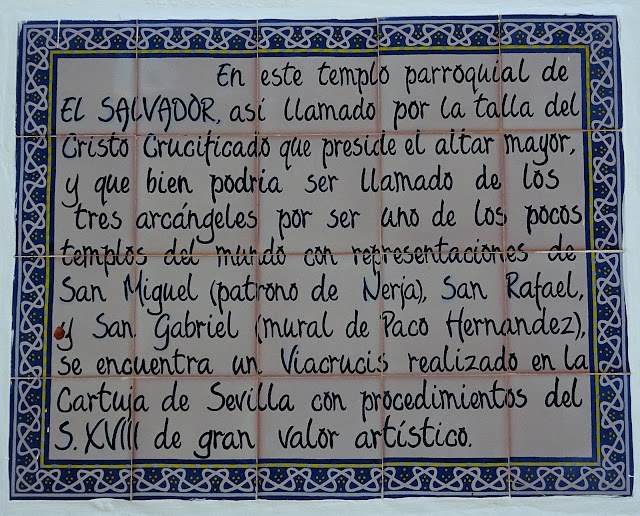 En este templo parroquial de
EL SALVADOR, así llamado por la talla del
Cristo Crucificado que preside el altar mayor,
y que bien podria ser llamado de los
tres arcángeles por ser uno de los pocos
templos del mundo con representaciones de
San Miguel (patrono de Nerja), San Rafael,
y San Gabriel (mural de Paco Hernandez),
se encuentra un Viacrucis realizado en la
Cartuja de Sevilla con procedimientos del
S. XVIII de gran valor artístico.